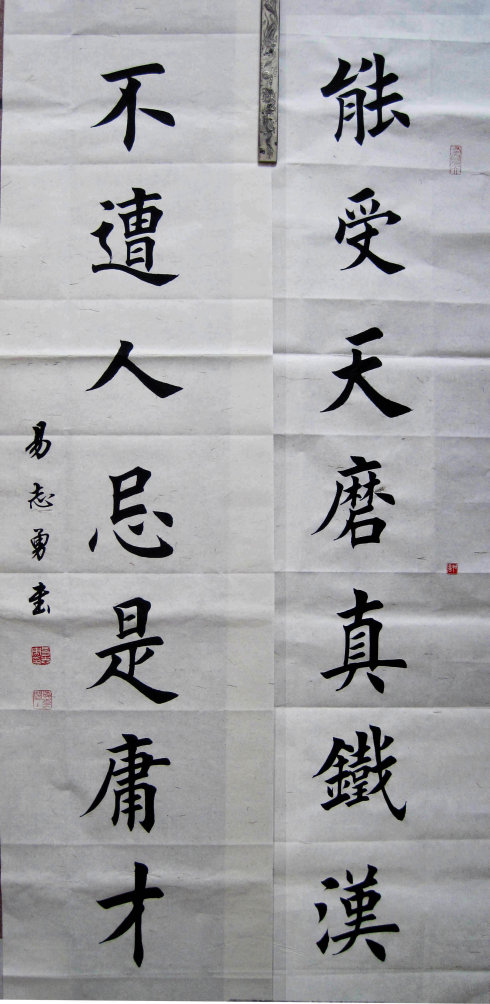 能受天磨真鐵漢
不遭人忌是庸才
易志勇书